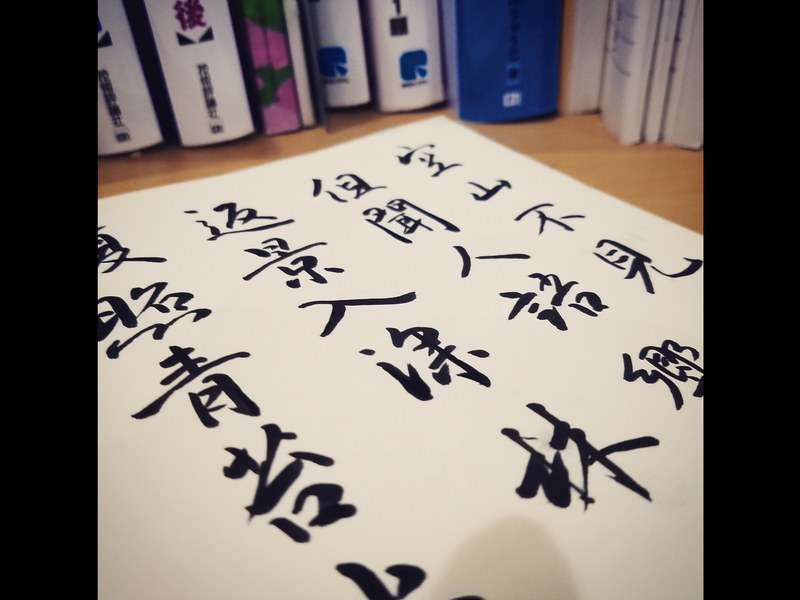 空山不見
但聞人語鄉
返景入深林
復照青苔上
後
1